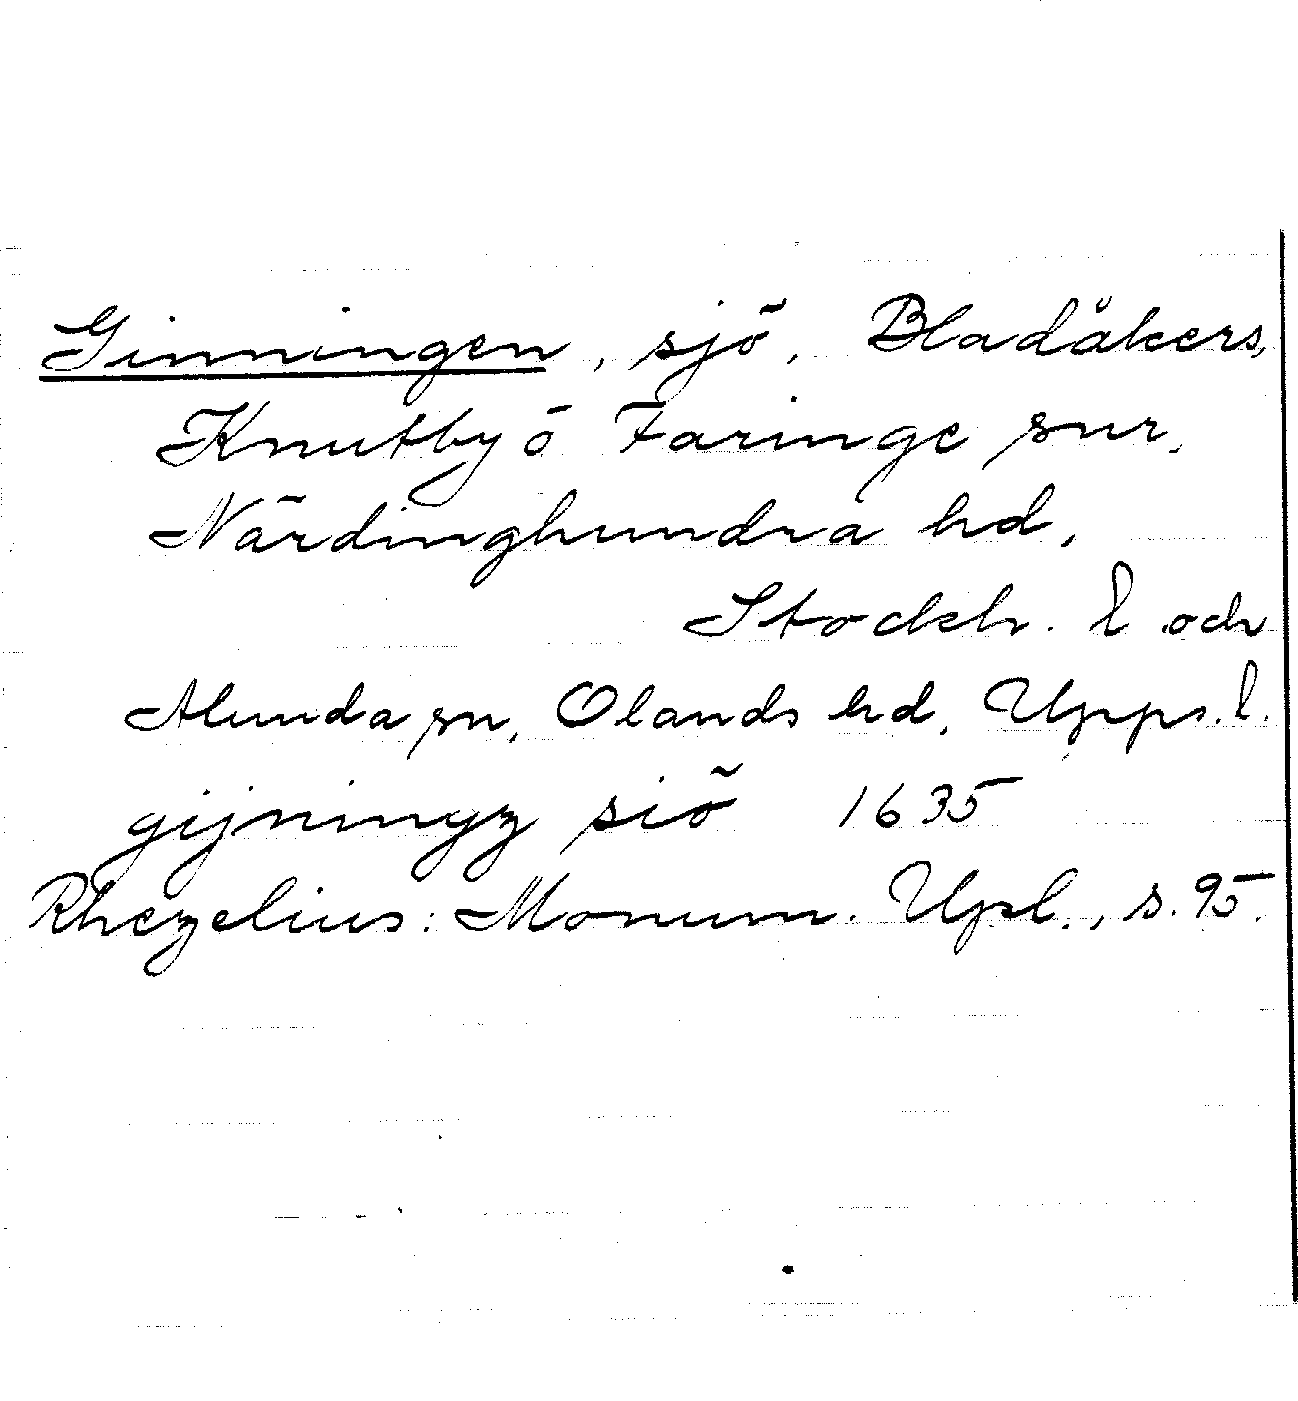 Ginningen, sjö, Bladåkers,
Knutby o Faringe snr,
Närdinghundra hd,
Stockh. l och
Alunda sn, Olands hd, Upps. l.
gijningz siö 1635
Rhezelius: Monum. Upl., s. 95.